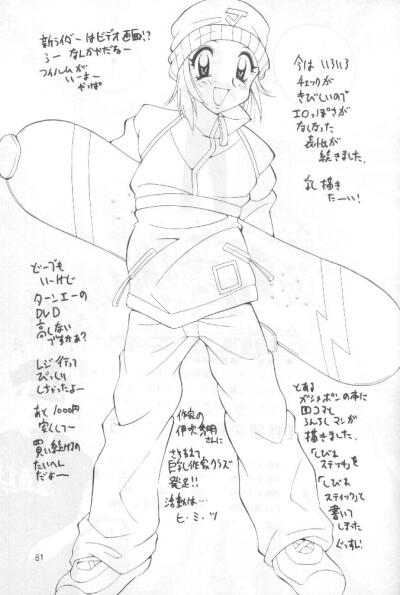 今はいろいろ
チェックが
きびしいので
エロっぽさが
なくなった
表仕が
続きました。
乳描き
たーい!
新ライダーはビデオ画面!?
うー なんかやだなー
フィルムが
いーよー
やっぱ
どーでも
いーけど
ターンエーの
DVD
高くない
ですかぁ?
レジ行って
びっくり
しちゃったよー
あと1000円
安くしてー
買い続けるの
たいへん
だよー
作家の
さんに
巨乳作家クラブ
発足!!
活動は…
ヒ・ミ・ツ
とある
ガシャポンの本に
四コマと
マンガ
描きました。
「しびれ
ステッチ」を
「しびれ
スティック」と
書いて
しまった
ぐっすん
81